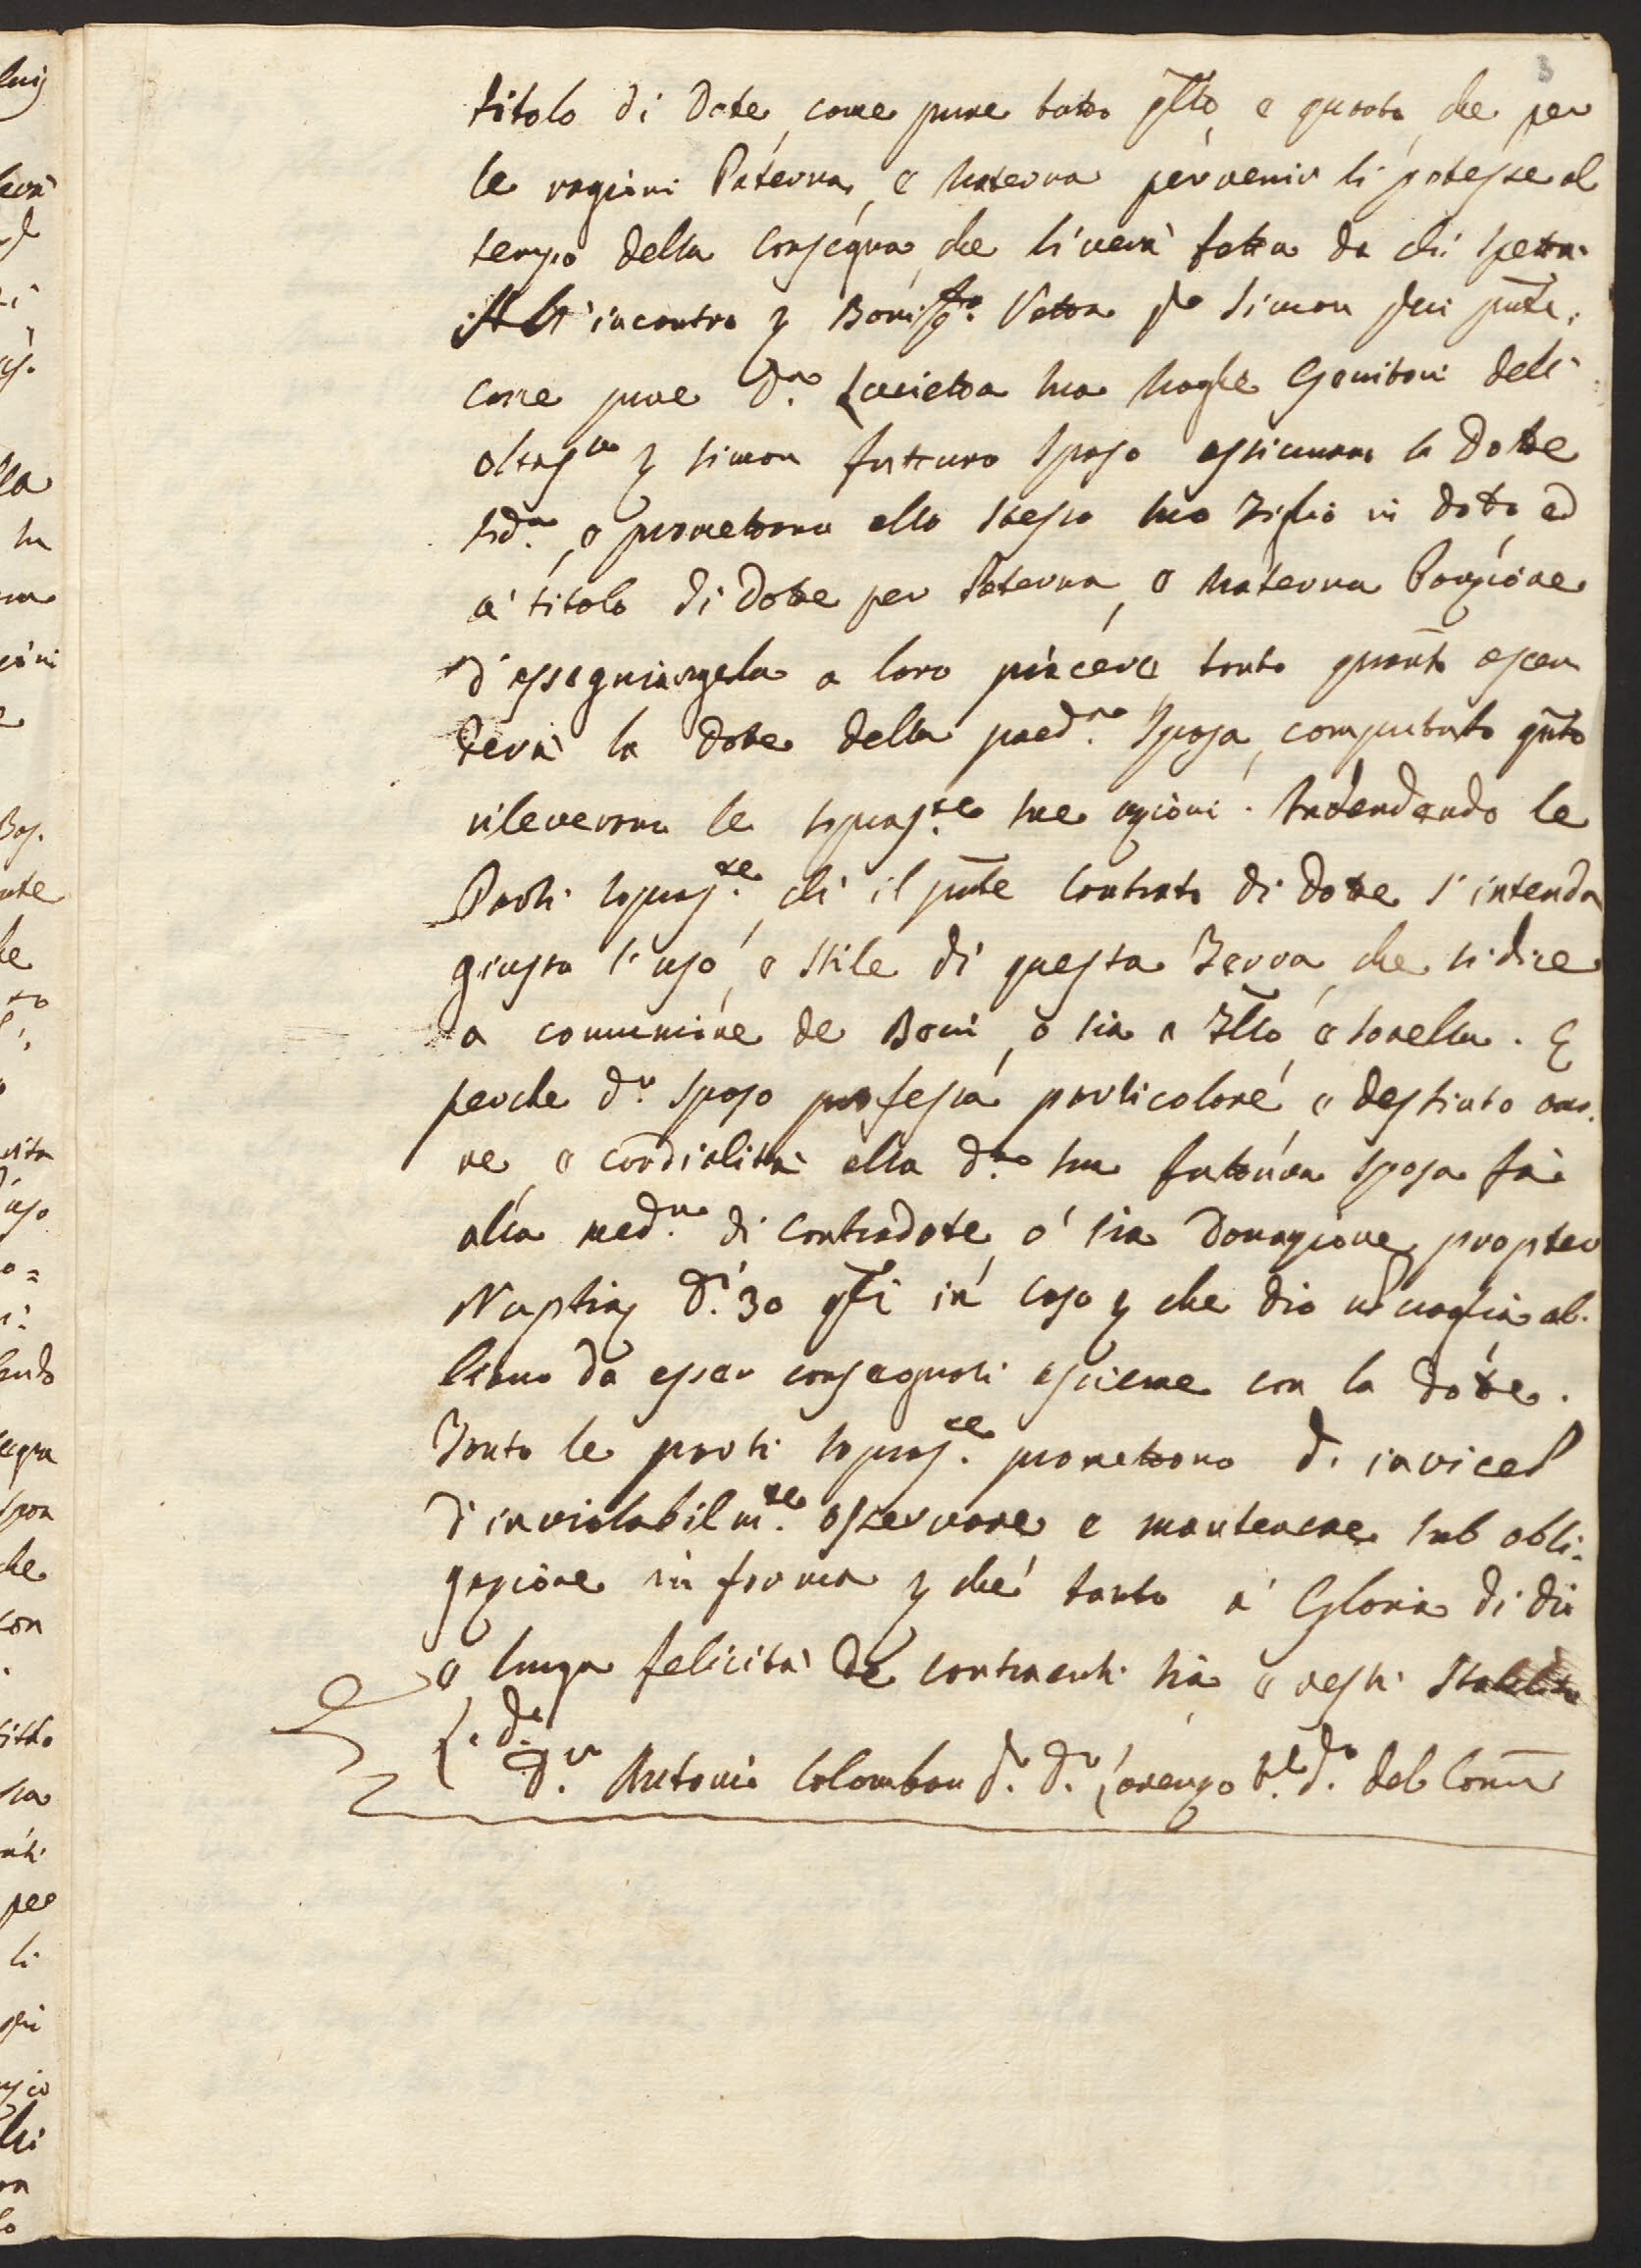 3
titolo di Dote, come pure tutto qllo, e quanto, che per
le ragioni Paterna, e Materna pervenir li potesse al
tempo della Consegna, che li verà fatta da chi spetta.
All'incontro Bonifo. Vatta qo Simon qui pnte,
come pure Da. Lucietta sua Moglie Genitori dell'
oltrasto Simon futturo Sposo assicurano la Dotte
suda., e promettono allo stesso suo Figlio in dotte, ed
a' titolo di Dotte per Paterna, e Materna Porzione
d'assegniargela a loro piacere tanto quanto ascen
derà la Dote della praeda. Sposa, computato qnto
rileverano le sopraste. sue azioni. Intendendo le
Parti sopraste., chi il pnte Contrato di Dotte s'intenda
giusta l'uso, e Stile di questa Terra, che si dice
a comunione de Beni, o sia a Fllo, e Sorella. E
perche do. Sposo professa particolare, e destinto amo.
re, e cordialità alla da. sua futtura Sposa fà
alla meda. di Contradote, o' sia Donazione propter
Nuptias Di. 30 qli in caso che Dio nò voglia ab.
biano da esser consegnati assieme con la dotte.
Tanto le parti sopraste. promettono d. invicem
d'inviolabilmte. osservare e mantenere sub obli.
gazione in forma che' tanto a' Gloria di Dio
e lunga felicità de contraenti sia e resti Stabilito
Dr. Antonio Colomban Lorenzo del Comu